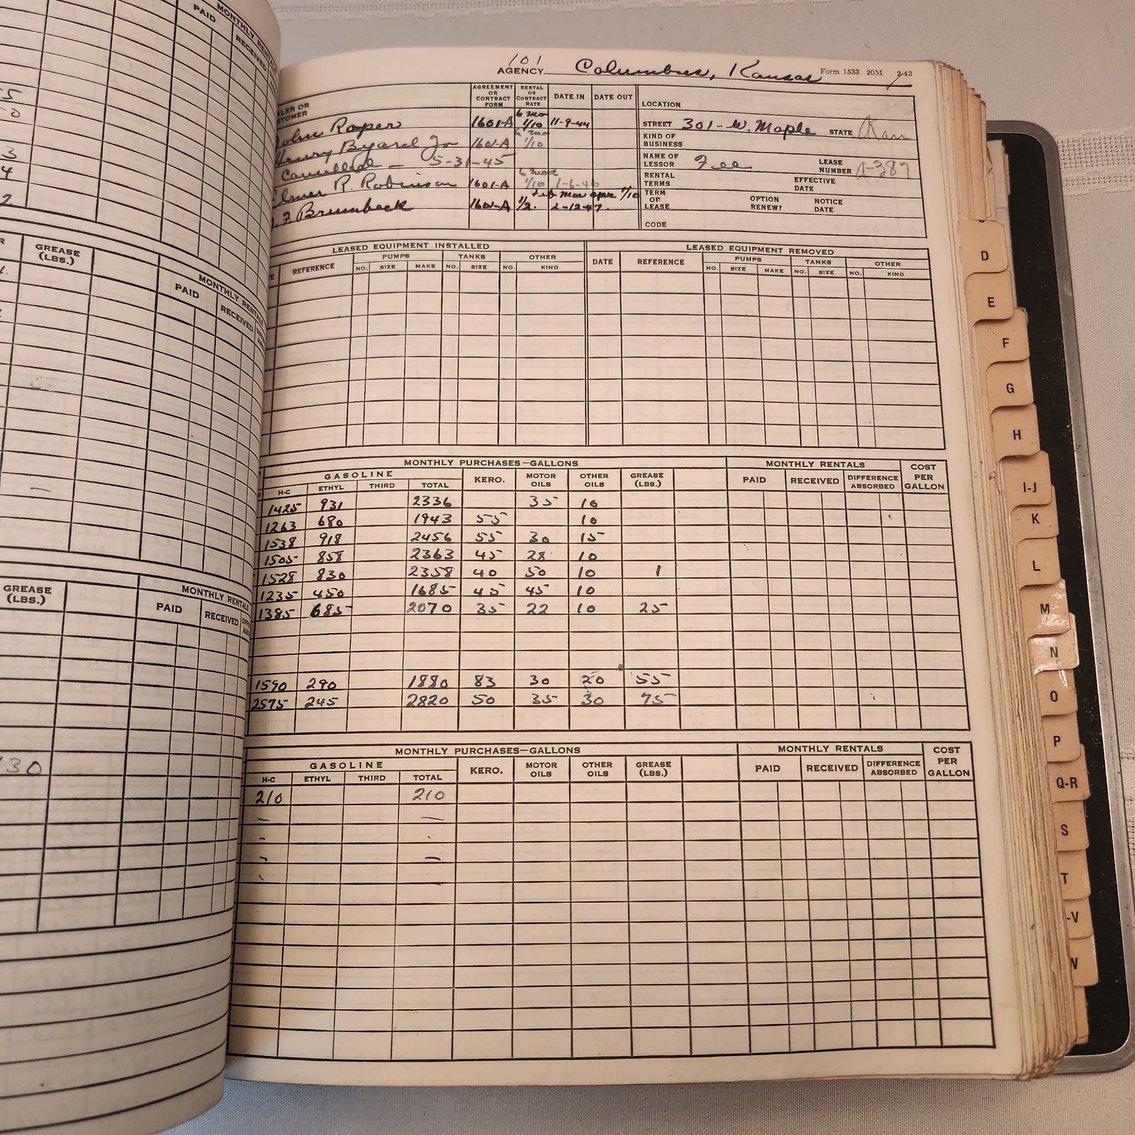 MONTHLY
PAID
RECEIVED
5
3
4
2
GREASE (LBS.)
MONTHLY RENTALS
PAID
RECEIVED
GREASE (LBS.)
MONTHLY RENTALS
PAID
RECEIVED
130
101
AGENCY Columbus, Kansas Form 1533 20M 2-42
AGREEMENT OR CONTRACT FORM RENTAL OR CONTRACT RATE DATE IN DATE OUT
John Roper 1601-A 6 mo 1/10 11-9-44
Henry Byard Jr 1601-A 6 mo 1/10
Cancelled - 5-31-45
Elmer R. Robinson 1601-A 6 mos 1/10 1-6-46
Brumback 1601-A 1/2. 2-12-47.
LOCATION
STREET 301-W. Maple STATE Kan
KIND OF BUSINESS
NAME OF LESSOR Fee LEASE NUMBER A-387
RENTAL TERMS EFFECTIVE DATE
TERM OF LEASE OPTION RENEW? NOTICE DATE
CODE
LEASED EQUIPMENT INSTALLED LEASED EQUIPMENT REMOVED
REFERENCE PUMPS TANKS OTHER DATE REFERENCE PUMPS TANKS OTHER
NO. SIZE MAKE NO. SIZE NO. KIND NO. SIZE MAKE NO. SIZE NO. KIND
MONTHLY PURCHASES—GALLONS MONTHLY RENTALS COST PER GALLON
GASOLINE KERO. MOTOR OILS OTHER OILS GREASE (LBS.) PAID RECEIVED DIFFERENCE ABSORBED
H-C ETHYL THIRD TOTAL
1425 931 2336 35 10
1263 680 1943 55 10
1538 918 2456 55 30 15
1505 858 2363 45 28 10
1528 830 2358 40 50 10 1
1235 450 1685 45 45 10
1385 685 2070 35 22 10 25
1590 290 1880 83 30 20 55
2575 245 2820 50 35 30 75
MONTHLY PURCHASES—GALLONS MONTHLY RENTALS COST PER GALLON
GASOLINE KERO. MOTOR OILS OTHER OILS GREASE (LBS.) PAID RECEIVED DIFFERENCE ABSORBED
H-C ETHYL THIRD TOTAL
210 210
D
E
F
G
H
I-J
K
L
M
N
O
P
Q-R
S
T
-V
W